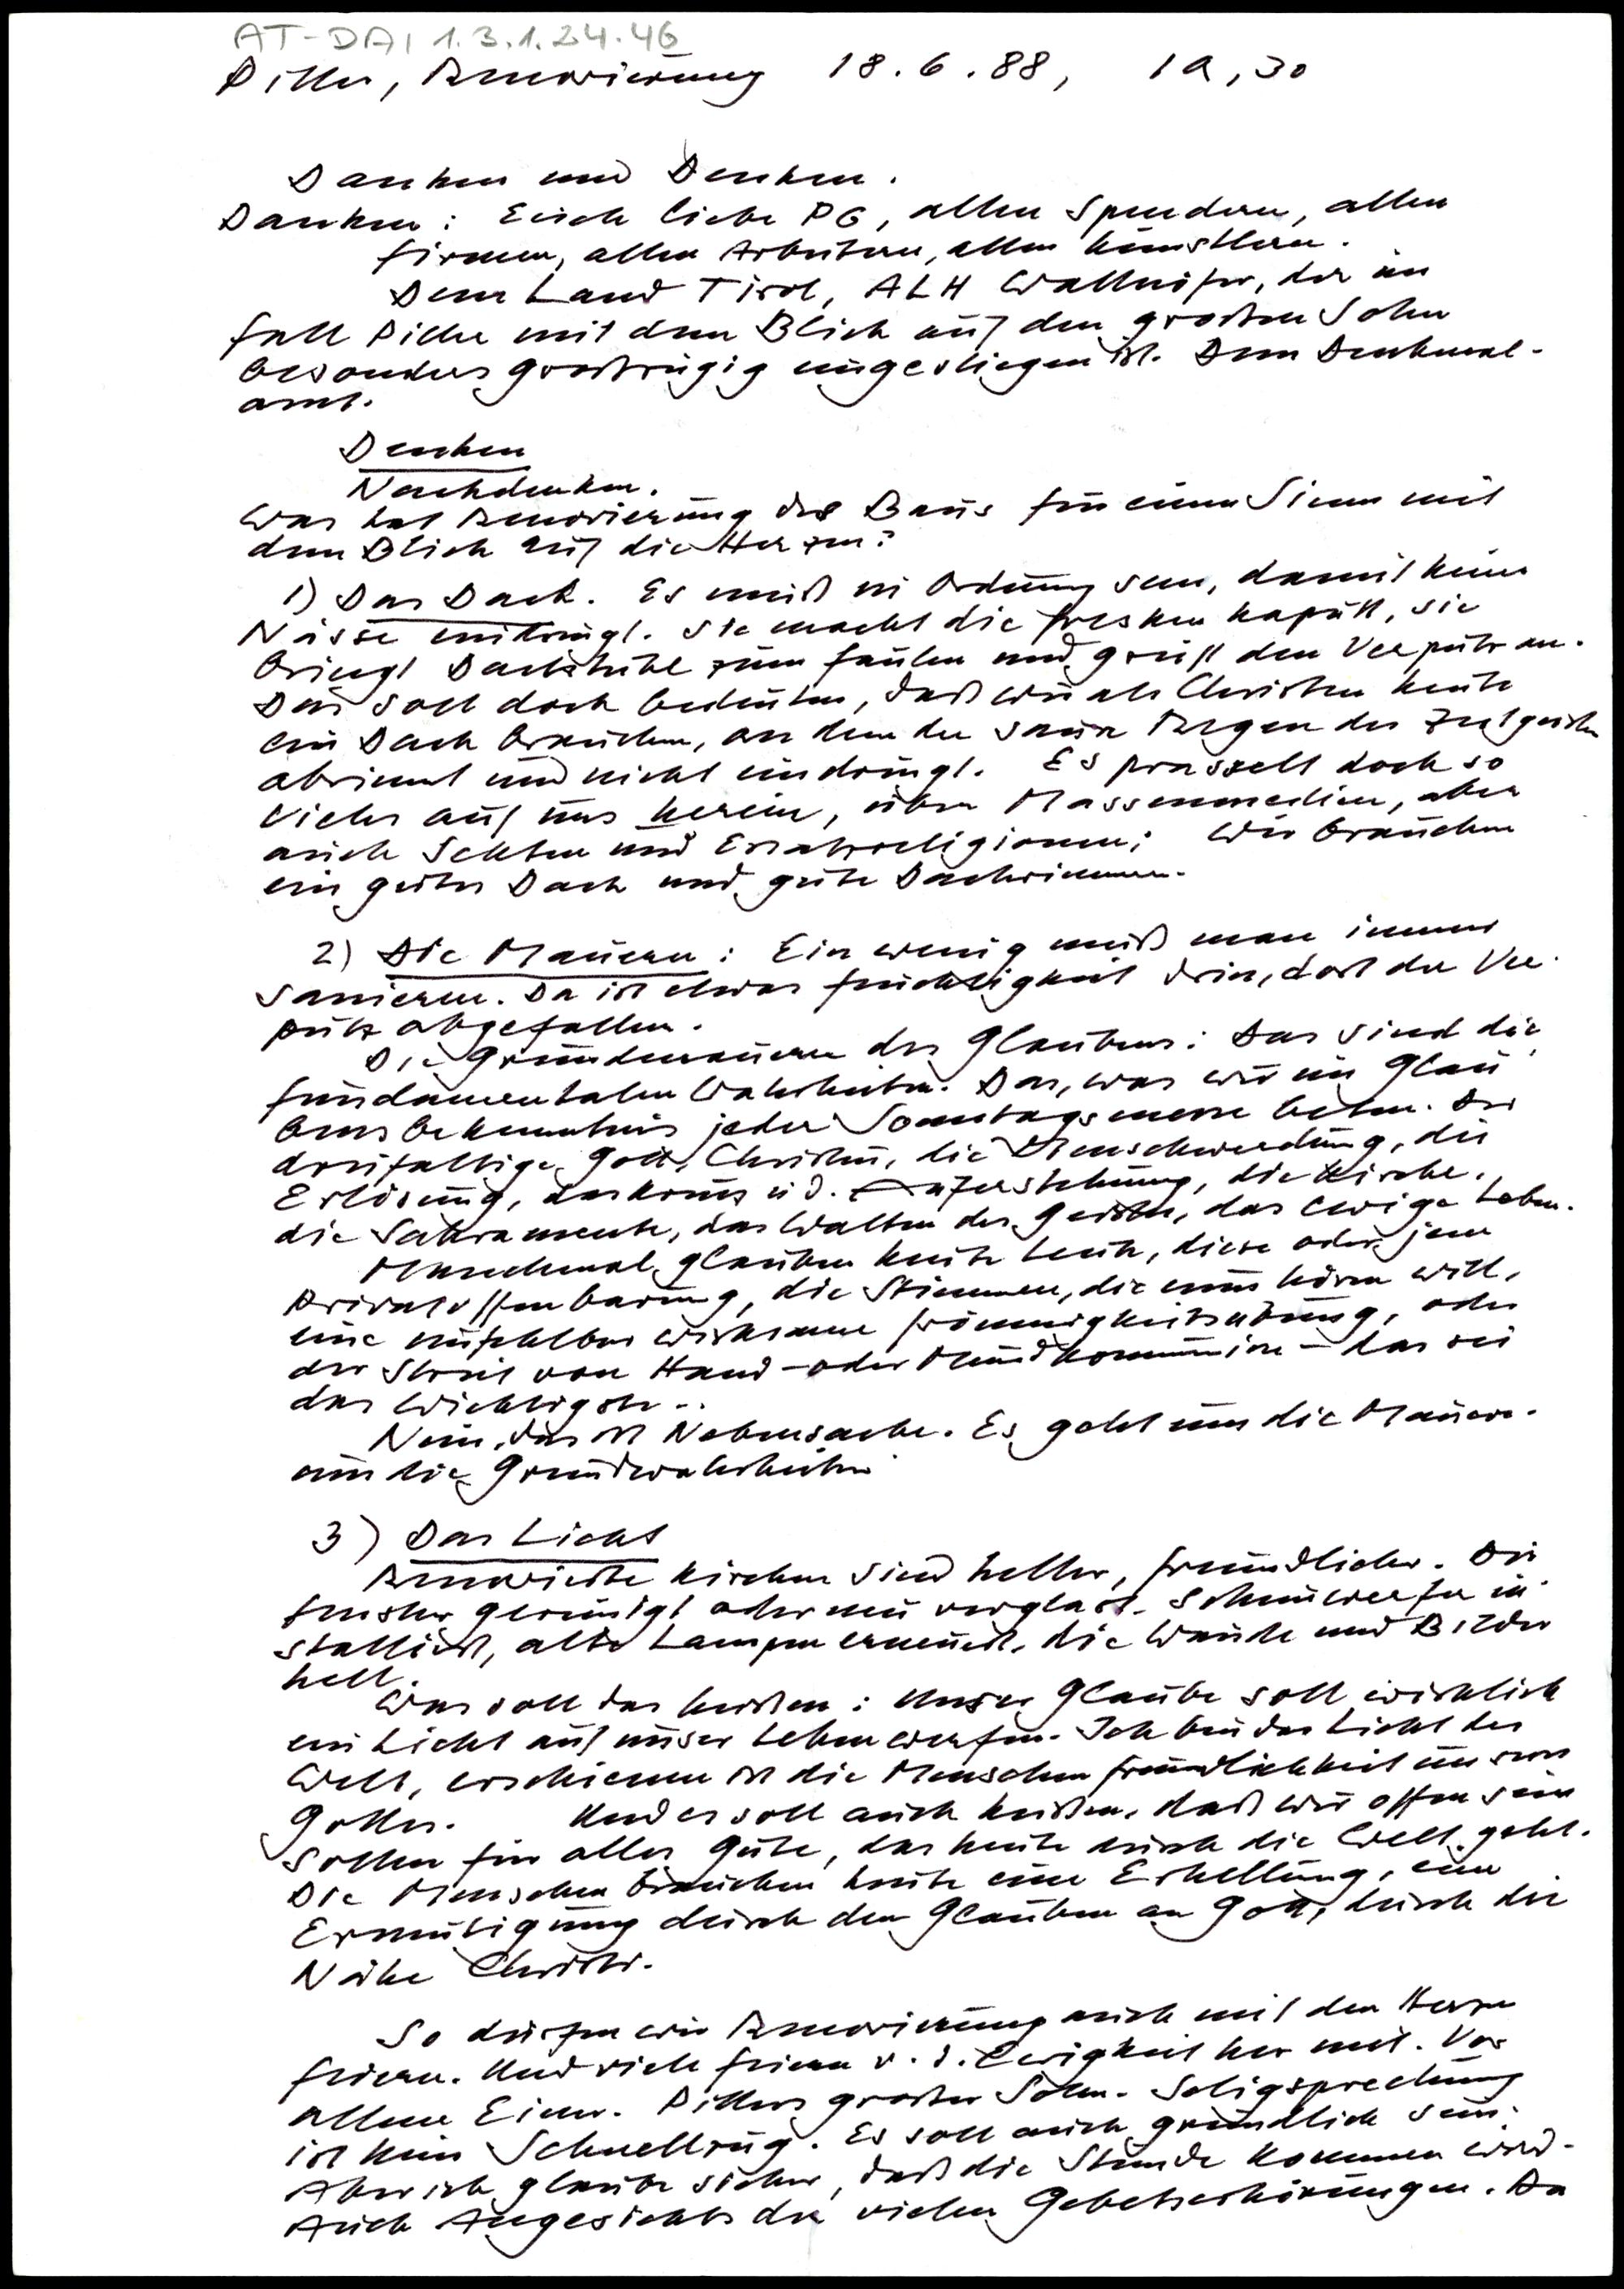 AT-DAI 1.3.1.24.46
Piller, Renovierung 18.6.88, 19,30
Danken und Denken.
Danken: Euch liebe PG, allen Spendern, allen
Firmen, allen Arbeitern, allen Künstlern.
Dem Land Tirol, ALH Wallnöfer, der im
Fall Piller mit dem Blick auf den großen Sohn
besonders großzügig eingestiegen ist. Dem Denkmal-
amt.
Denken
Nachdenken.
Was hat Renovierung des Baus für einen Sinn mit
dem Blick auf die Herzen?
1) Das Dach. Es muß in Ordnung sein, damit keine
Nässe eindringt. Sie macht die Fresken kaputt, sie
bringt Dachstühle zum faulen und greift den Verputz an.
Das soll doch bedeuten, daß wir als Christen heute
ein Dach brauchen, an dem der saure Regen des Zeitgeistes
abrinnt und nicht eindringt. Es prasselt doch so
vieles auf uns herein, über Massenmedien, aber
auch Sekten und Ersatzreligionen; Wir brauchen
ein gutes Dach und gute Dachrinnen.
2) Die Mauern: Ein wenig muß man immer
sanieren. Da ist etwas Feuchtigkeit drin, dort der Ver-
putz abgefallen.
Die Grundmauern des Glaubens: Das sind die
fundamentalen Wahrheiten. Das, was wir im Glau-
bensbekenntnis jeder Sonntagsmesse beten. Der
dreifaltige Gott, Christus, die Menschwerdung, die
Erlösung, das Kreuz u d. Auferstehung, die Kirche,
die Sakramente, das Walten des Geistes, das ewige Leben.
Manchmal glauben heute Leute, diese oder jene
Privatoffenbarung, die Stimmen, die man hören will,
eine unfehlbar wirksame Frömmigkeitsübung, oder
der Streit von Hand- oder Mundkommunion - das sei
das Wichtigste..
Nein, das ist Nebensache. Es geht um die Mauern.
um die Grundwahrheiten
3) Das Licht
Renovierte Kirchen sind heller, freundlicher. Die
Fenster gereinigt oder neu verglast. Scheinwerfer in-
stalliert, alte Lampen erneuert, die Wände und Bilder
hell.
Was soll das heißen: Unser Glaube soll wirklich
ein Licht auf unser Leben werfen. Ich bin das Licht der
Welt, erschienen ist die Menschenfreundlichkeit unseres
Gottes. Und es soll auch heißen, daß wir offen sein
sollen für alles Gute, das heute durch die Welt geht.
Die Menschen brauchen heute eine Erhellung, eine
Ermutigung durch den Glauben an Gott, durch die
Nähe Christi.
So dürfen wir Renovierung auch mit den Herzen
feiern. Und viele feiern v. d. Ewigkeit her mit. Vor
allem Einer. Pillers großer Sohn. Seligsprechung
ist kein Schnellzug. Es soll auch gründlich sein.
Aber ich glaube sicher, daß die Stunde kommen wird.
Auch Angesichts der vielen Gebetserhörungen. Da